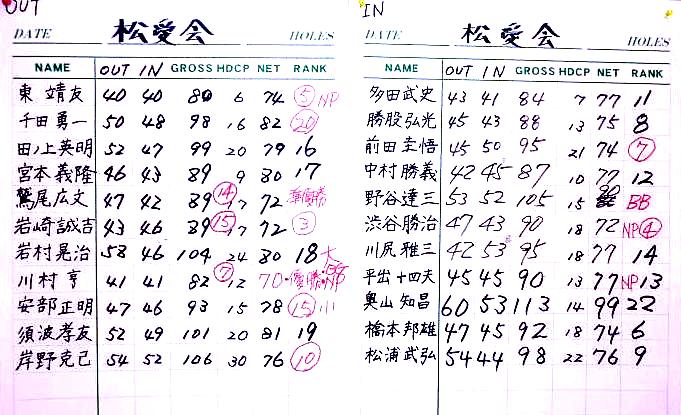 OUT
DATE 松愛会 HOLES
NAME OUT IN GROSS HDCP NET RANK
東 靖友 40 40 80 6 74 ⑤ NP
千田 勇一 50 48 98 16 82 ⑳
田ノ上英明 52 47 99 20 79 16
宮本義隆 46 43 89 9 80 17
鷲尾広文 47 42 89 ⑭ 17 72 準優勝
岩崎誠吉 43 46 89 ⑮ 17 72 ③
岩村晃治 58 46 104 24 80 18 大
川村 亨 41 41 82 ⑦ 12 70・優勝・NP
安部正明 47 46 93 15 78 ⑮ 小
須波孝友 52 49 101 20 81 19
岸野克己 54 52 106 30 76 ⑩
IN
DATE 松愛会 HOLES
NAME OUT IN GROSS HDCP NET RANK
多田武史 43 41 84 7 77 11
勝股弘光 45 43 88 13 75 8
前田圭悟 45 50 95 21 74 ⑦
中村勝義 42 45 87 10 77 12
野谷達三 53 52 105 15 90 BB
渋谷勝治 47 43 90 18 72 NP④
川尻雅三 42 53 95 18 77 14
平出十四夫 45 45 90 13 77 NP13
奥山知昌 60 53 113 14 99 22
橋本邦雄 47 45 92 18 74 6
松浦武弘 54 44 98 22 76 9